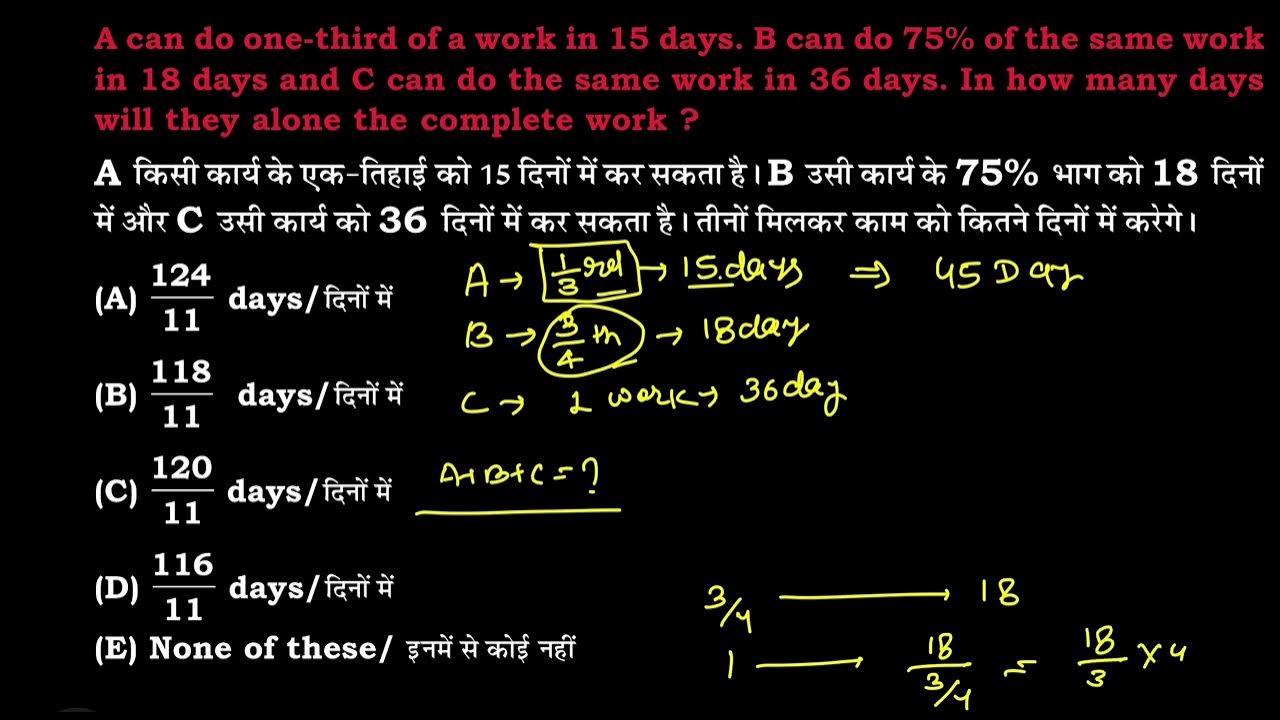 A can do one-third of a work in 15 days. B can do 75% of the same work
in 18 days and C can do the same work in 36 days. In how many days
will they alone the complete work ?
A किसी कार्य के एक-तिहाई को 15 दिनों में कर सकता है। B उसी कार्य के 75% भाग को 18 दिनों
में और C उसी कार्य को 36 दिनों में कर सकता है। तीनों मिलकर काम को कितने दिनों में करेगे।
(A) 124/11 days/दिनों में
(B) 118/11 days/दिनों में
(C) 120/11 days/दिनों में
(D) 116/11 days/दिनों में
(E) None of these/ इनमें से कोई नहीं
A → 1/3 rd → 15 days ⇒ 45 Day
B → 3/4 th → 18 day
C → 1 work → 36 day
A+B+C = ?
3/4 → 18
1 → 18/3/4 = 18/3 × 4